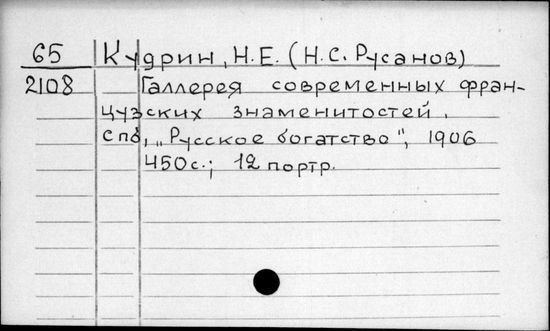 65 Кудрин, Н.Е. (Н.С. Русанов)
2108 Галлерея современных фран-
цузских знаменитостей.
спб, „Русское богатство", 1906
450с.; 12 портр.